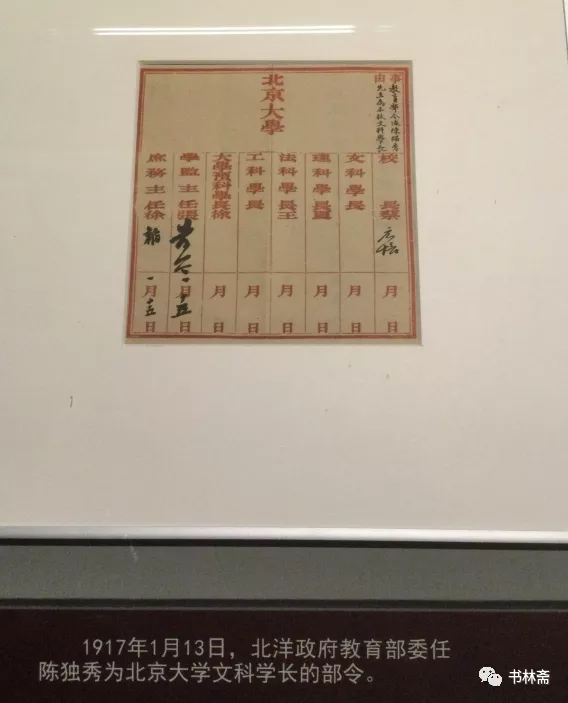 事由
教育部令派陳獨秀
先生為本校文科學長
北京大學
校長蔡 元培 月 日
文科學長 月 日
理科學長夏 月 日
法科學長王 月 日
工科學長 月 日
大學預科學長徐 月 日
學監主任張 一月十五日
庶務主任徐 一月十五日
1917年1月13日，北洋政府教育部委任
陈独秀为北京大学文科学长的部令。
书林斋